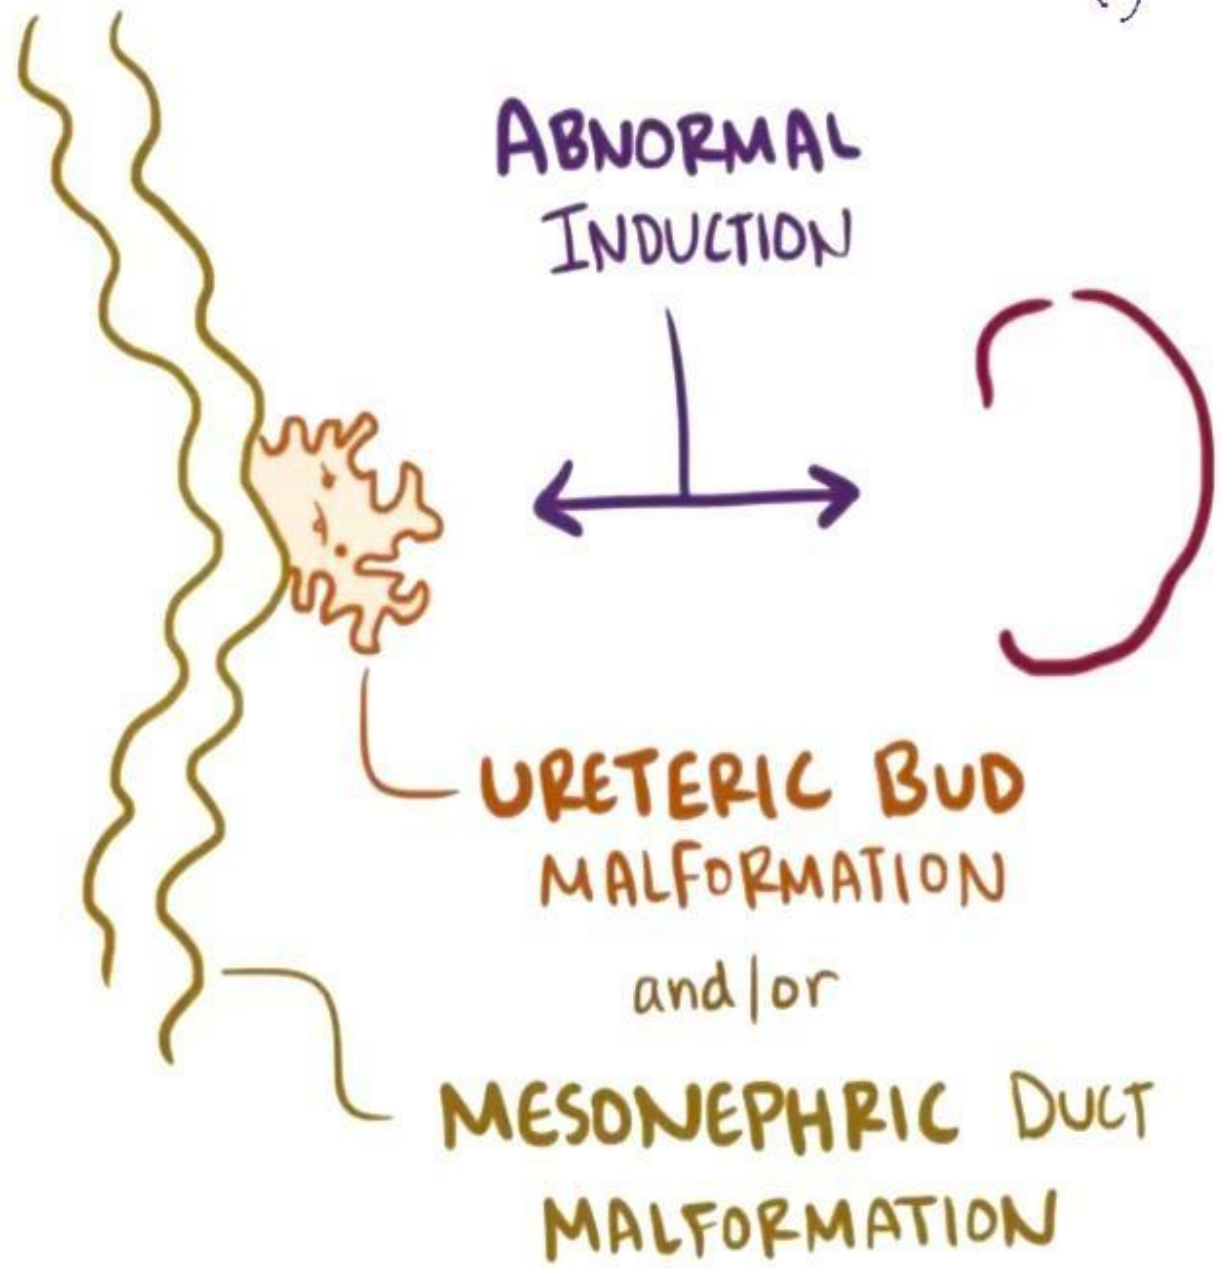 ABNORMAL
INDUCTION
URETERIC BUD
MALFORMATION
and/or
MESONEPHRIC DUCT
MALFORMATION